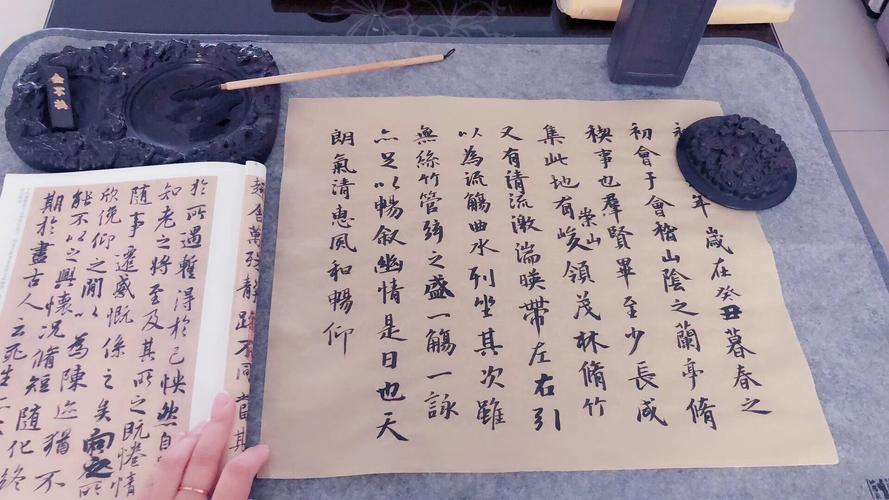 年歲在癸丑暮春之
初會于會稽山陰之蘭亭脩
禊事也羣賢畢至少長咸
集此地有崇山峻領茂林脩竹
又有清流激湍暎帶左右引
以為流觴曲水列坐其次雖
無絲竹管弦之盛一觴一詠
亦足以暢叙幽情是日也天
朗氣清惠風和暢仰
舍萬殊靜躁不同當其
於所遇蹔得於己怏然自
知老之將至及其所之既惓情
隨事遷感慨係之矣向之所
欣俛仰之閒以為陳迹猶不
能不以之興懷況脩短隨化終
期於盡古人云死生
金不換